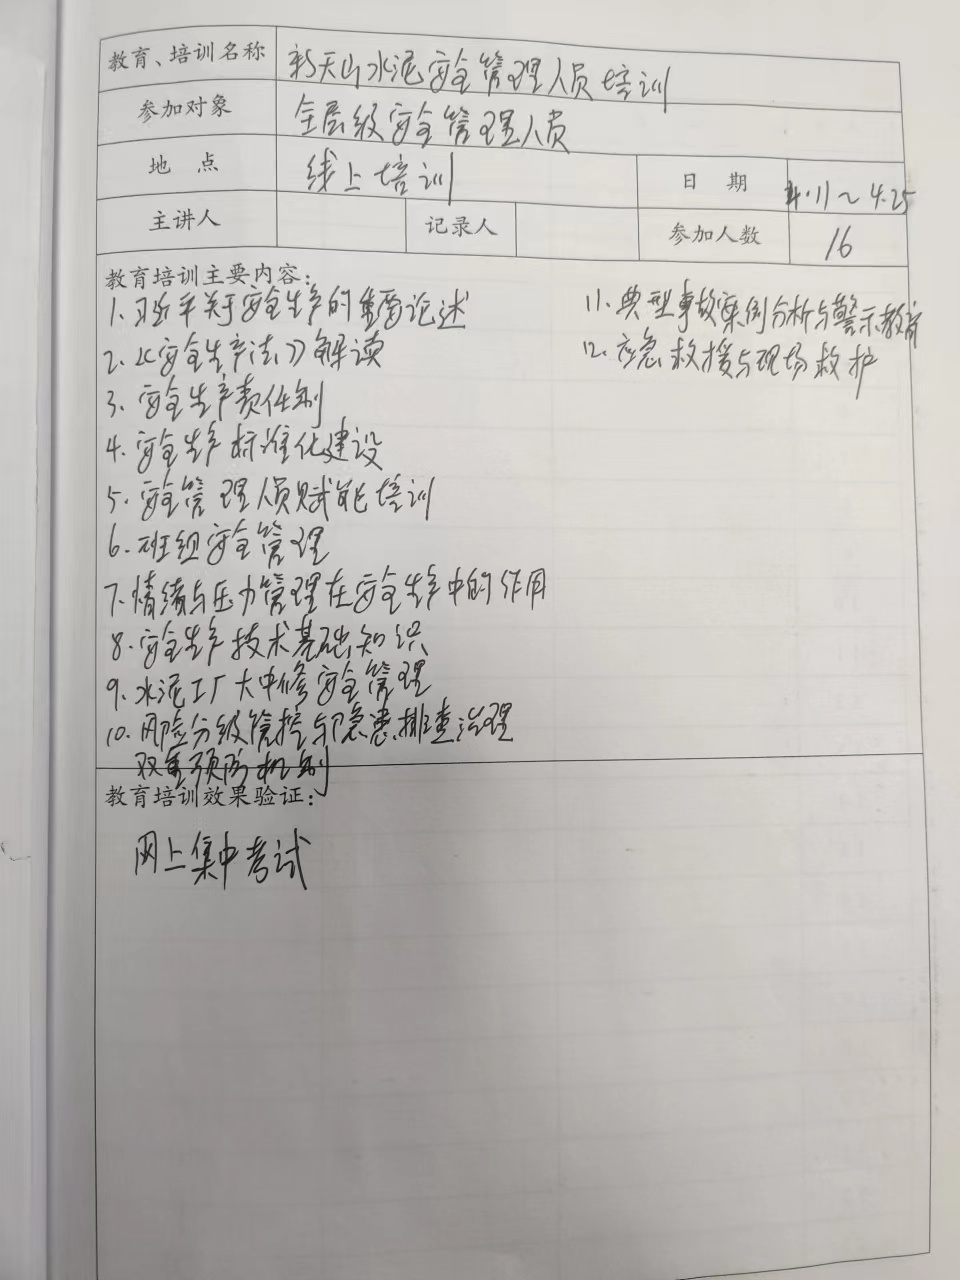 教育、培训名称 新天山水泥安全管理人员培训
参加对象 全层级安全管理人员
地 点 线上培训 日 期 4.11～4.25
主讲人 记录人 参加人数 16
教育培训主要内容：
1. 习近平关于安全生产的重要论述
2.《安全生产法》解读
3. 安全生产责任制
4. 安全生产标准化建设
5. 安全管理人员赋能培训
6. 班组安全管理
7. 情绪与压力管理在安全生产中的作用
8. 安全生产技术基础知识
9. 水泥工厂大中修安全管理
10. 风险分级管控与隐患排查治理
双重预防机制
11. 典型事故案例分析与警示教育
12. 应急救援与现场救护
教育培训效果验证：
网上集中考试